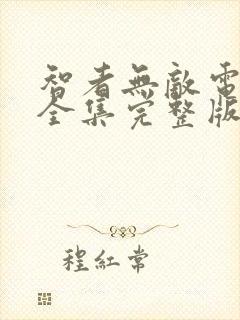 智者無敵電
全集完整版
程紅常